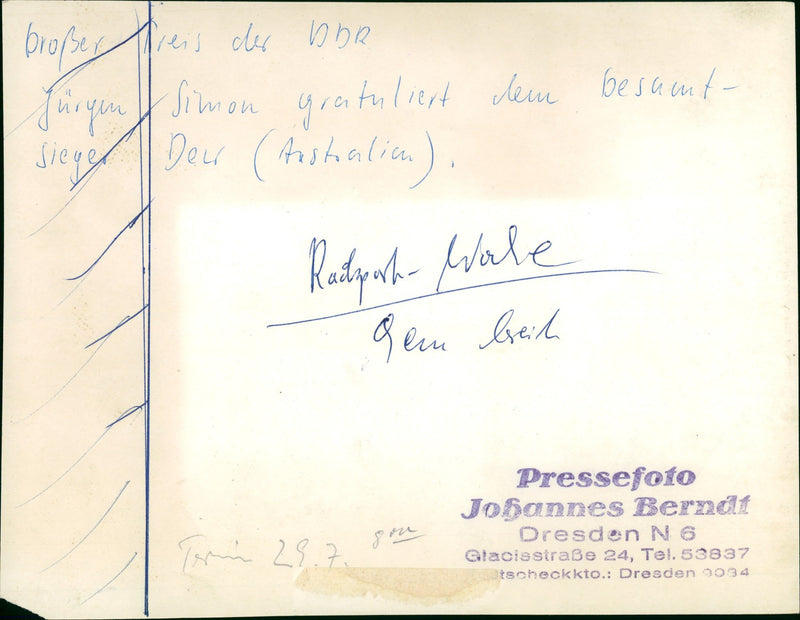 Großer Preis der DDR
Jürgen Simon gratuliert dem Gesamt-
sieger Dew (Australien).
Radsport-Woche
Termin 29.7. 8
Pressefoto
Johannes Berndt
Dresden N 6
Glacisstraße 24, Tel. 53837
tscheckkto.: Dresden